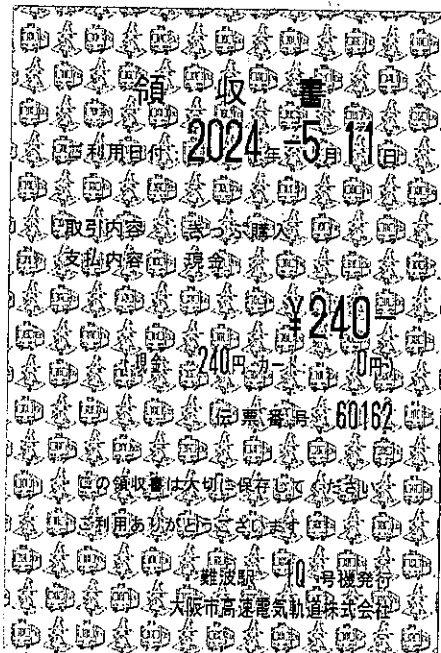 領収書
ご利用日付 2024年-5月11日
取引内容 きっぷ購入
支払内容 現金
¥240-
(現金 240円 カード 0円)
伝票番号 60162
この領収書は大切に保存してください
ご利用ありがとうございます
難波駅 10号機発行
大阪市高速電気軌道株式会社